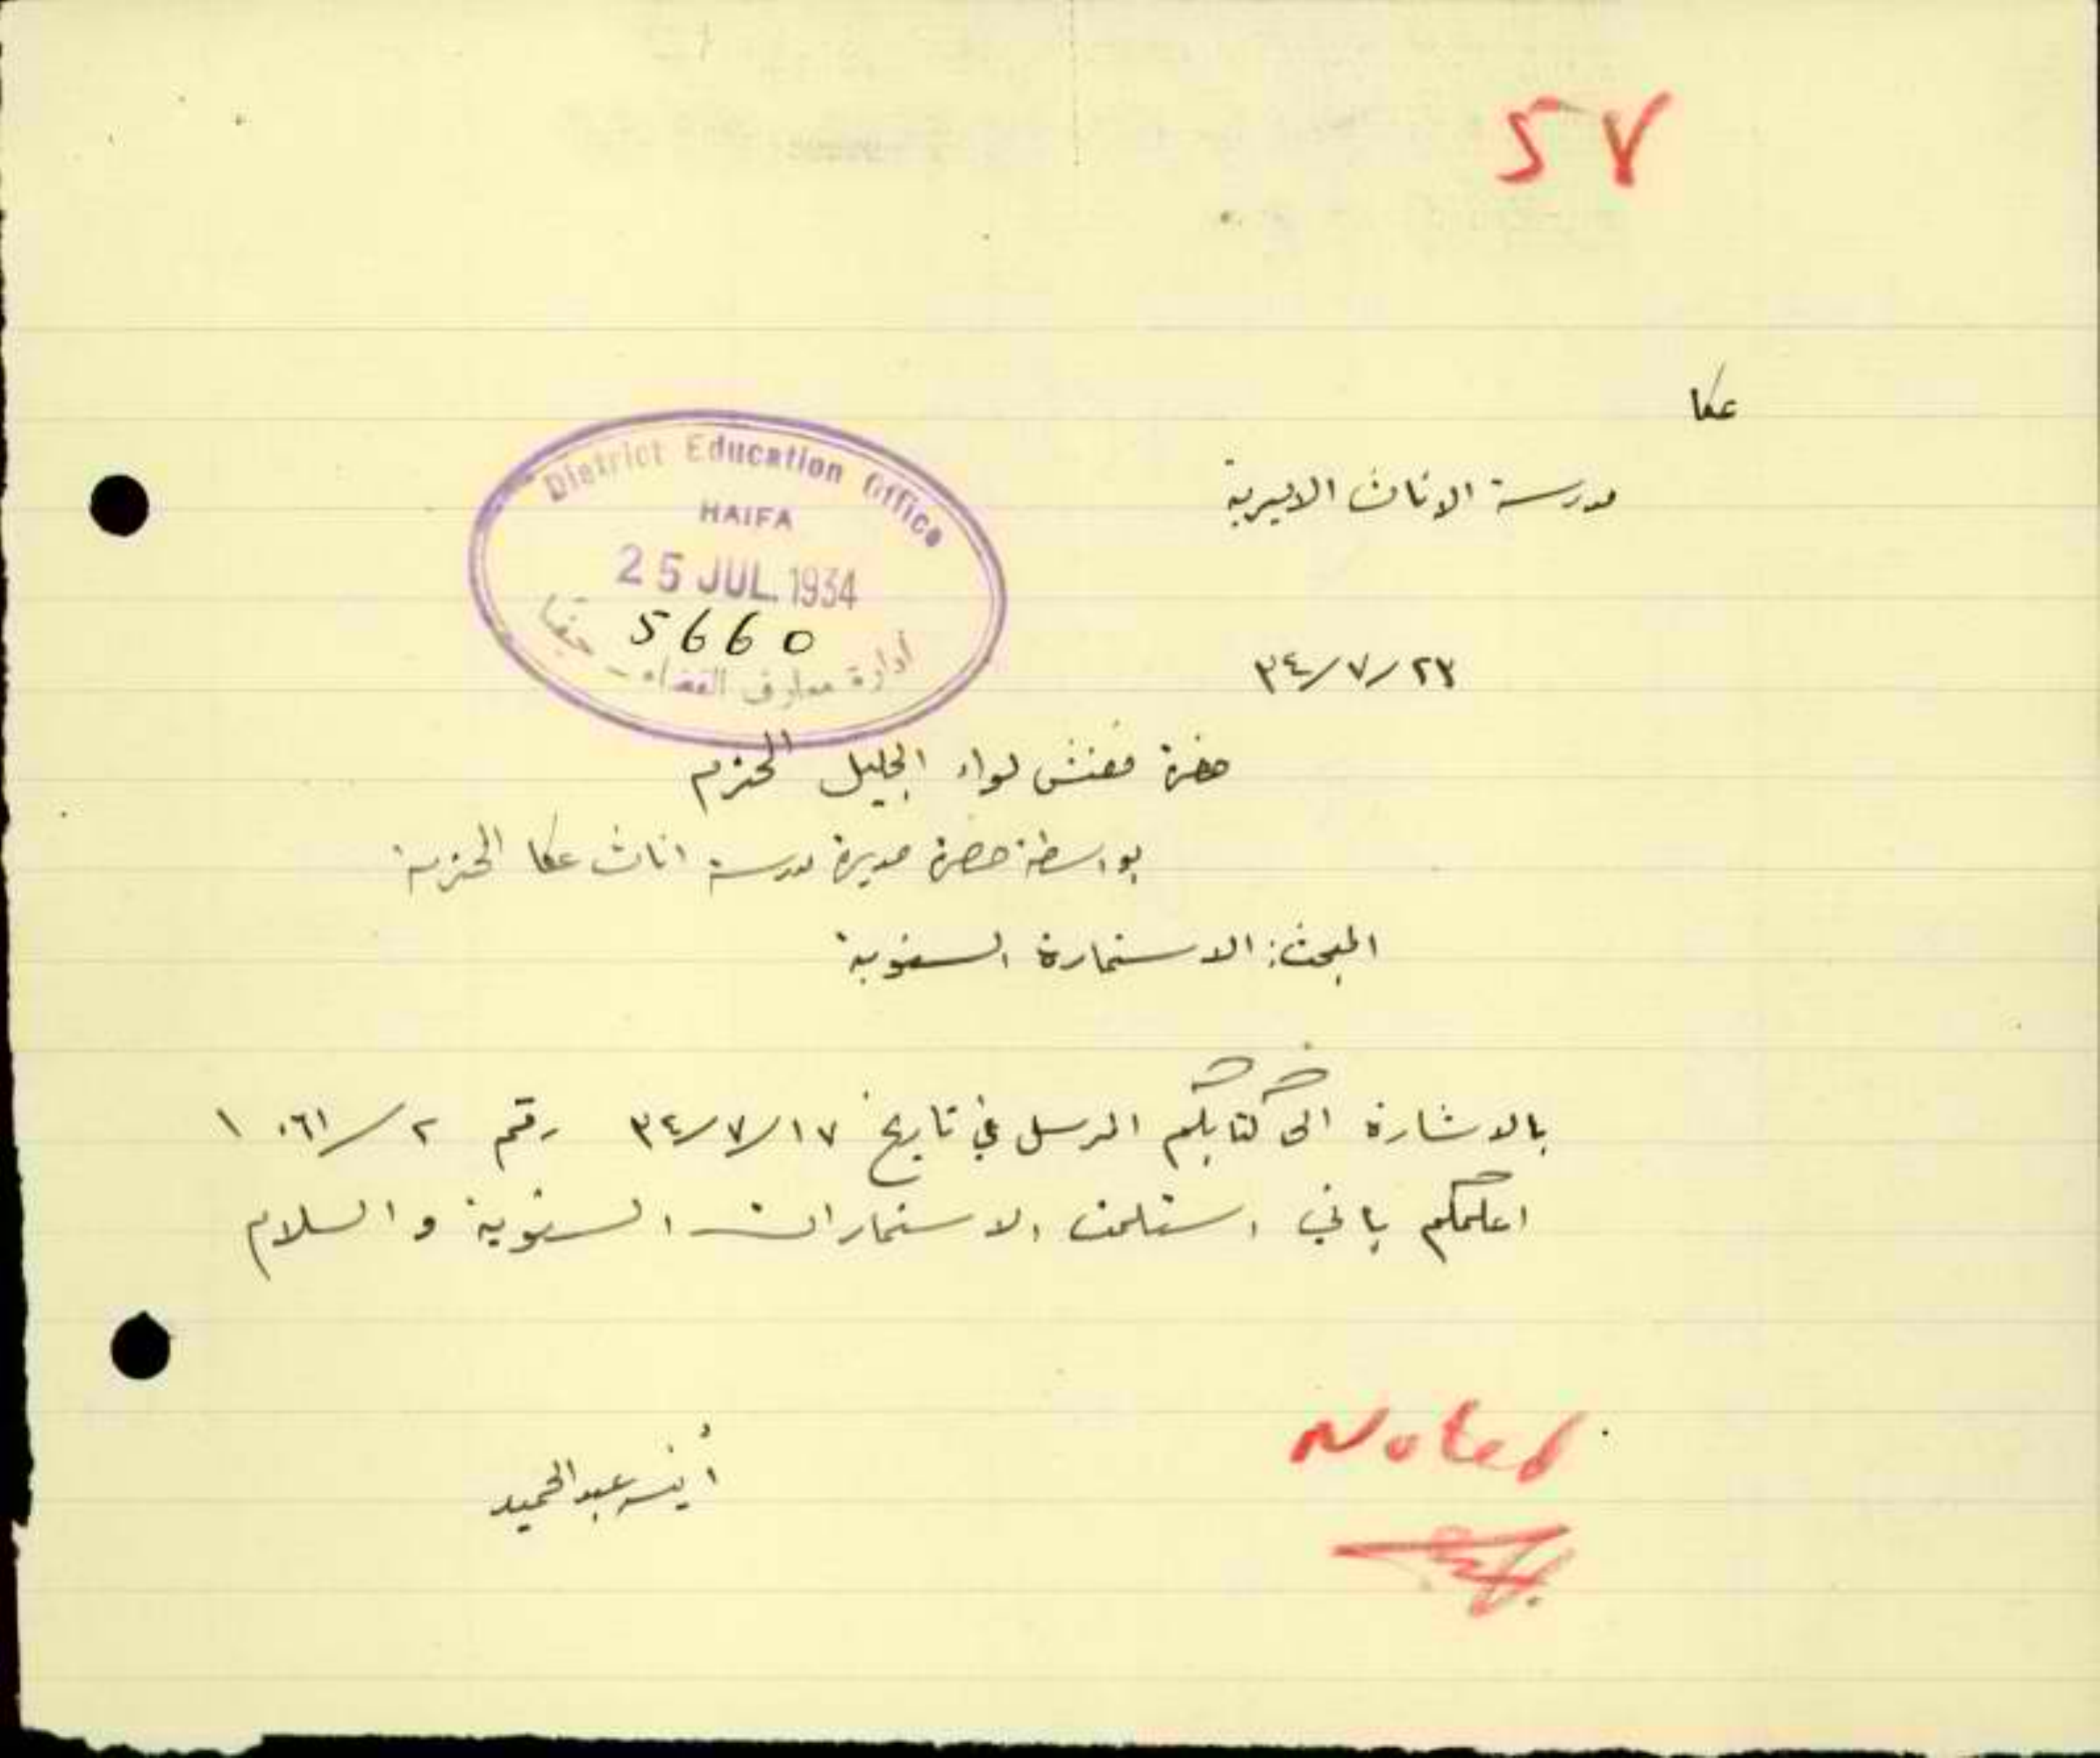 57
عكا
مدرسة الاناث الاميرية
District Education Office
HAIFA
25 JUL 1934
5660
ادارة معارف القضاء - حيفا
٢٣/٧/٣٤
حضرة مفتش لواء الجليل المحترم
بواسطة حضرة مديرة مدرسة اناث عكا المحترمة
المبحث: الاستمارة السنوية
بالاشارة الى كتابكم المرسل في تاريخ ١٧/٧/٣٤ رقم ٢/٠٦١ ١
اعلمكم باني استلمت الاستمارات السنوية والسلام
أنيسه عبد الحميد
Noted